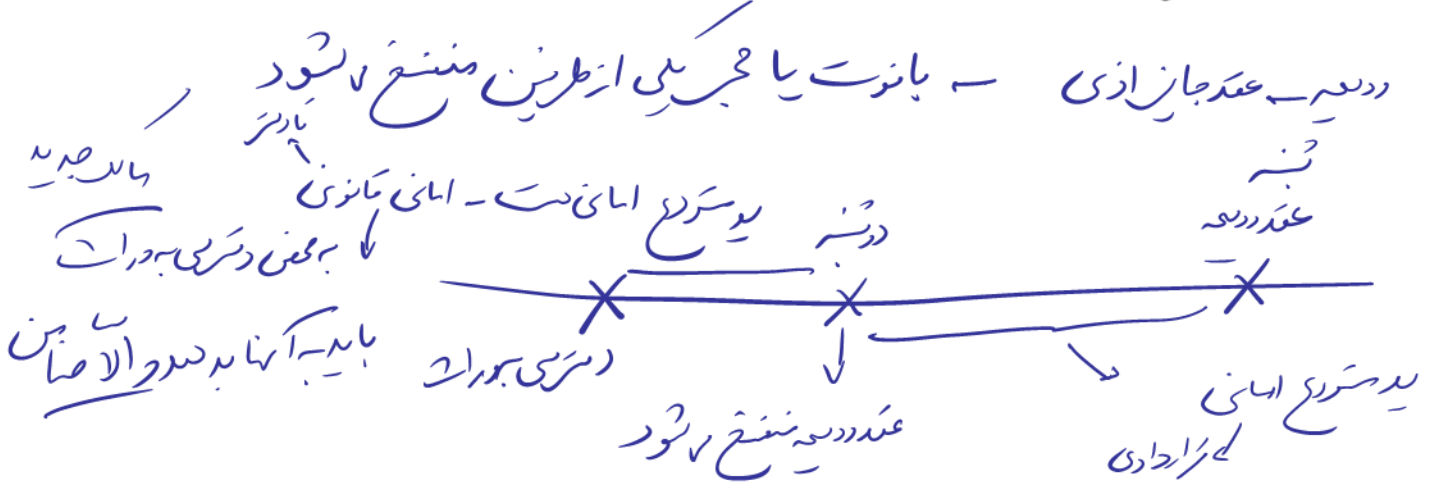 ودیعه ← عقد جایز اذنی ← با فوت یا حجر یکی از طرفین منفسخ می‌شود
شنبه
عقد ودیعه
دوشنبه
ید مستودع امانی است - امانی قانونی
به محض دسترسی به وراث
مالک جدید
باید به آنها بدهد و الا ضامن است
دسترسی به وراث
عقد ودیعه منفسخ می‌شود
ید مستودع امانی
قراردادی